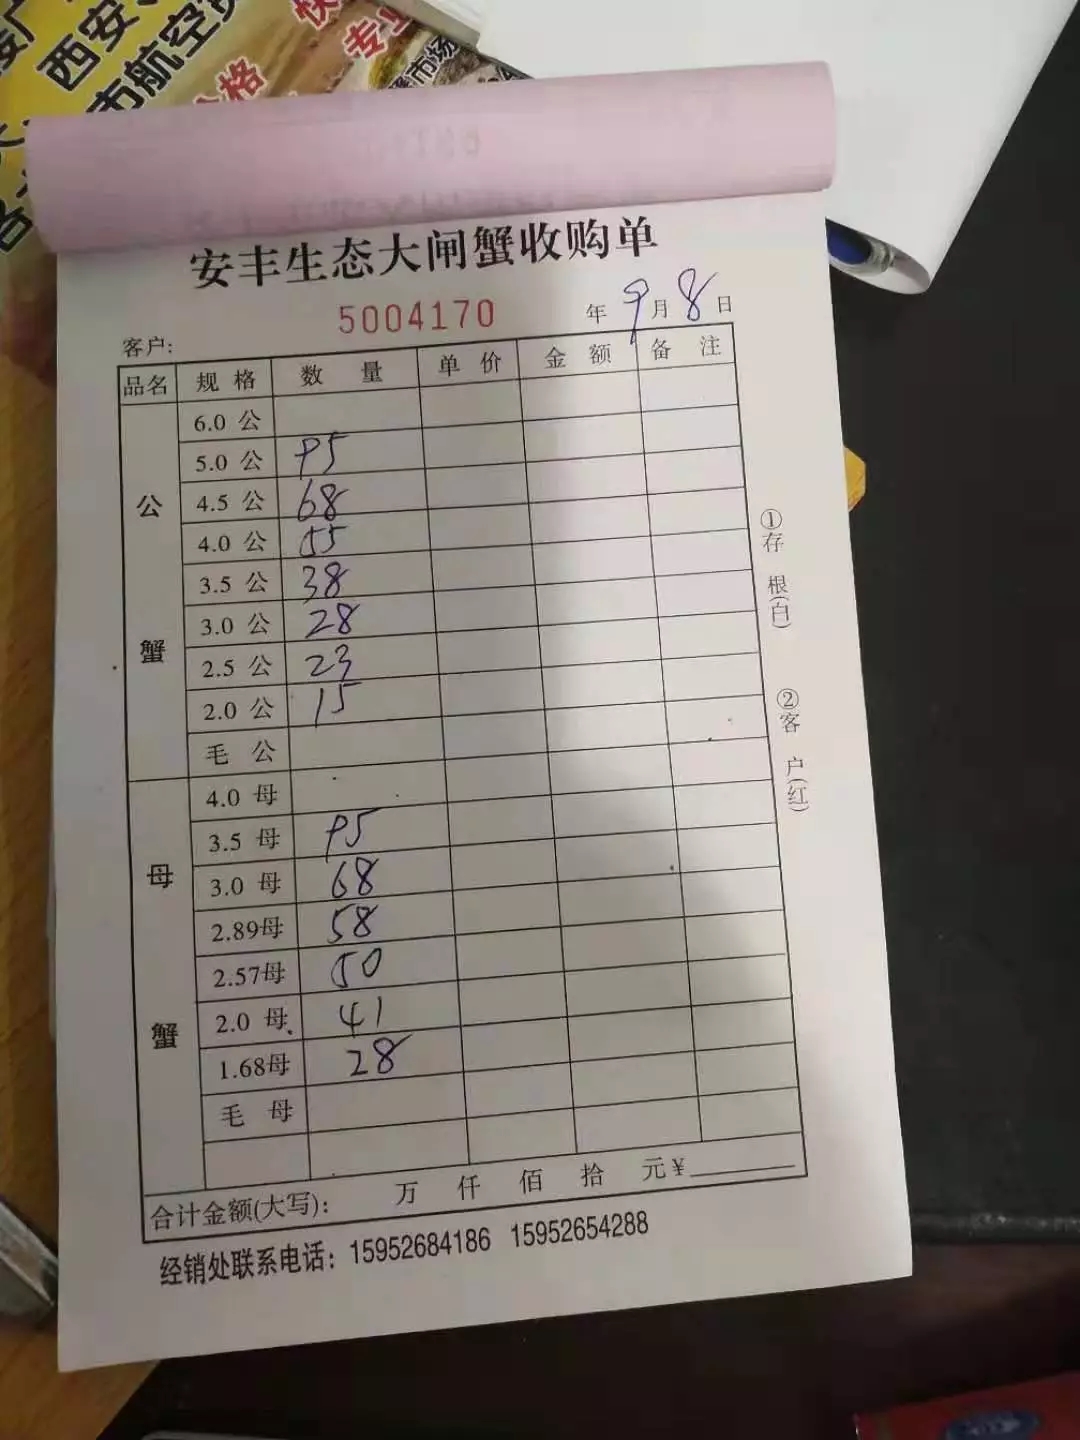 西安
市航空
价格
快
专业
蟹市场
安丰生态大闸蟹收购单
5004170
年 9月8日
客户:
品名 规格 数量 单价 金额 备注
公蟹
6.0 公
5.0 公 95
4.5 公 68
4.0 公 55
3.5 公 38
3.0 公 28
2.5 公 23
2.0 公 15
毛 公
母蟹
4.0 母
3.5 母 95
3.0 母 68
2.89母 58
2.57母 50
2.0 母 41
1.68母 28
毛 母
合计金额(大写): 万 仟 佰 拾 元¥
经销处联系电话: 15952684186 15952654288
①存根(白)
②客户(红)